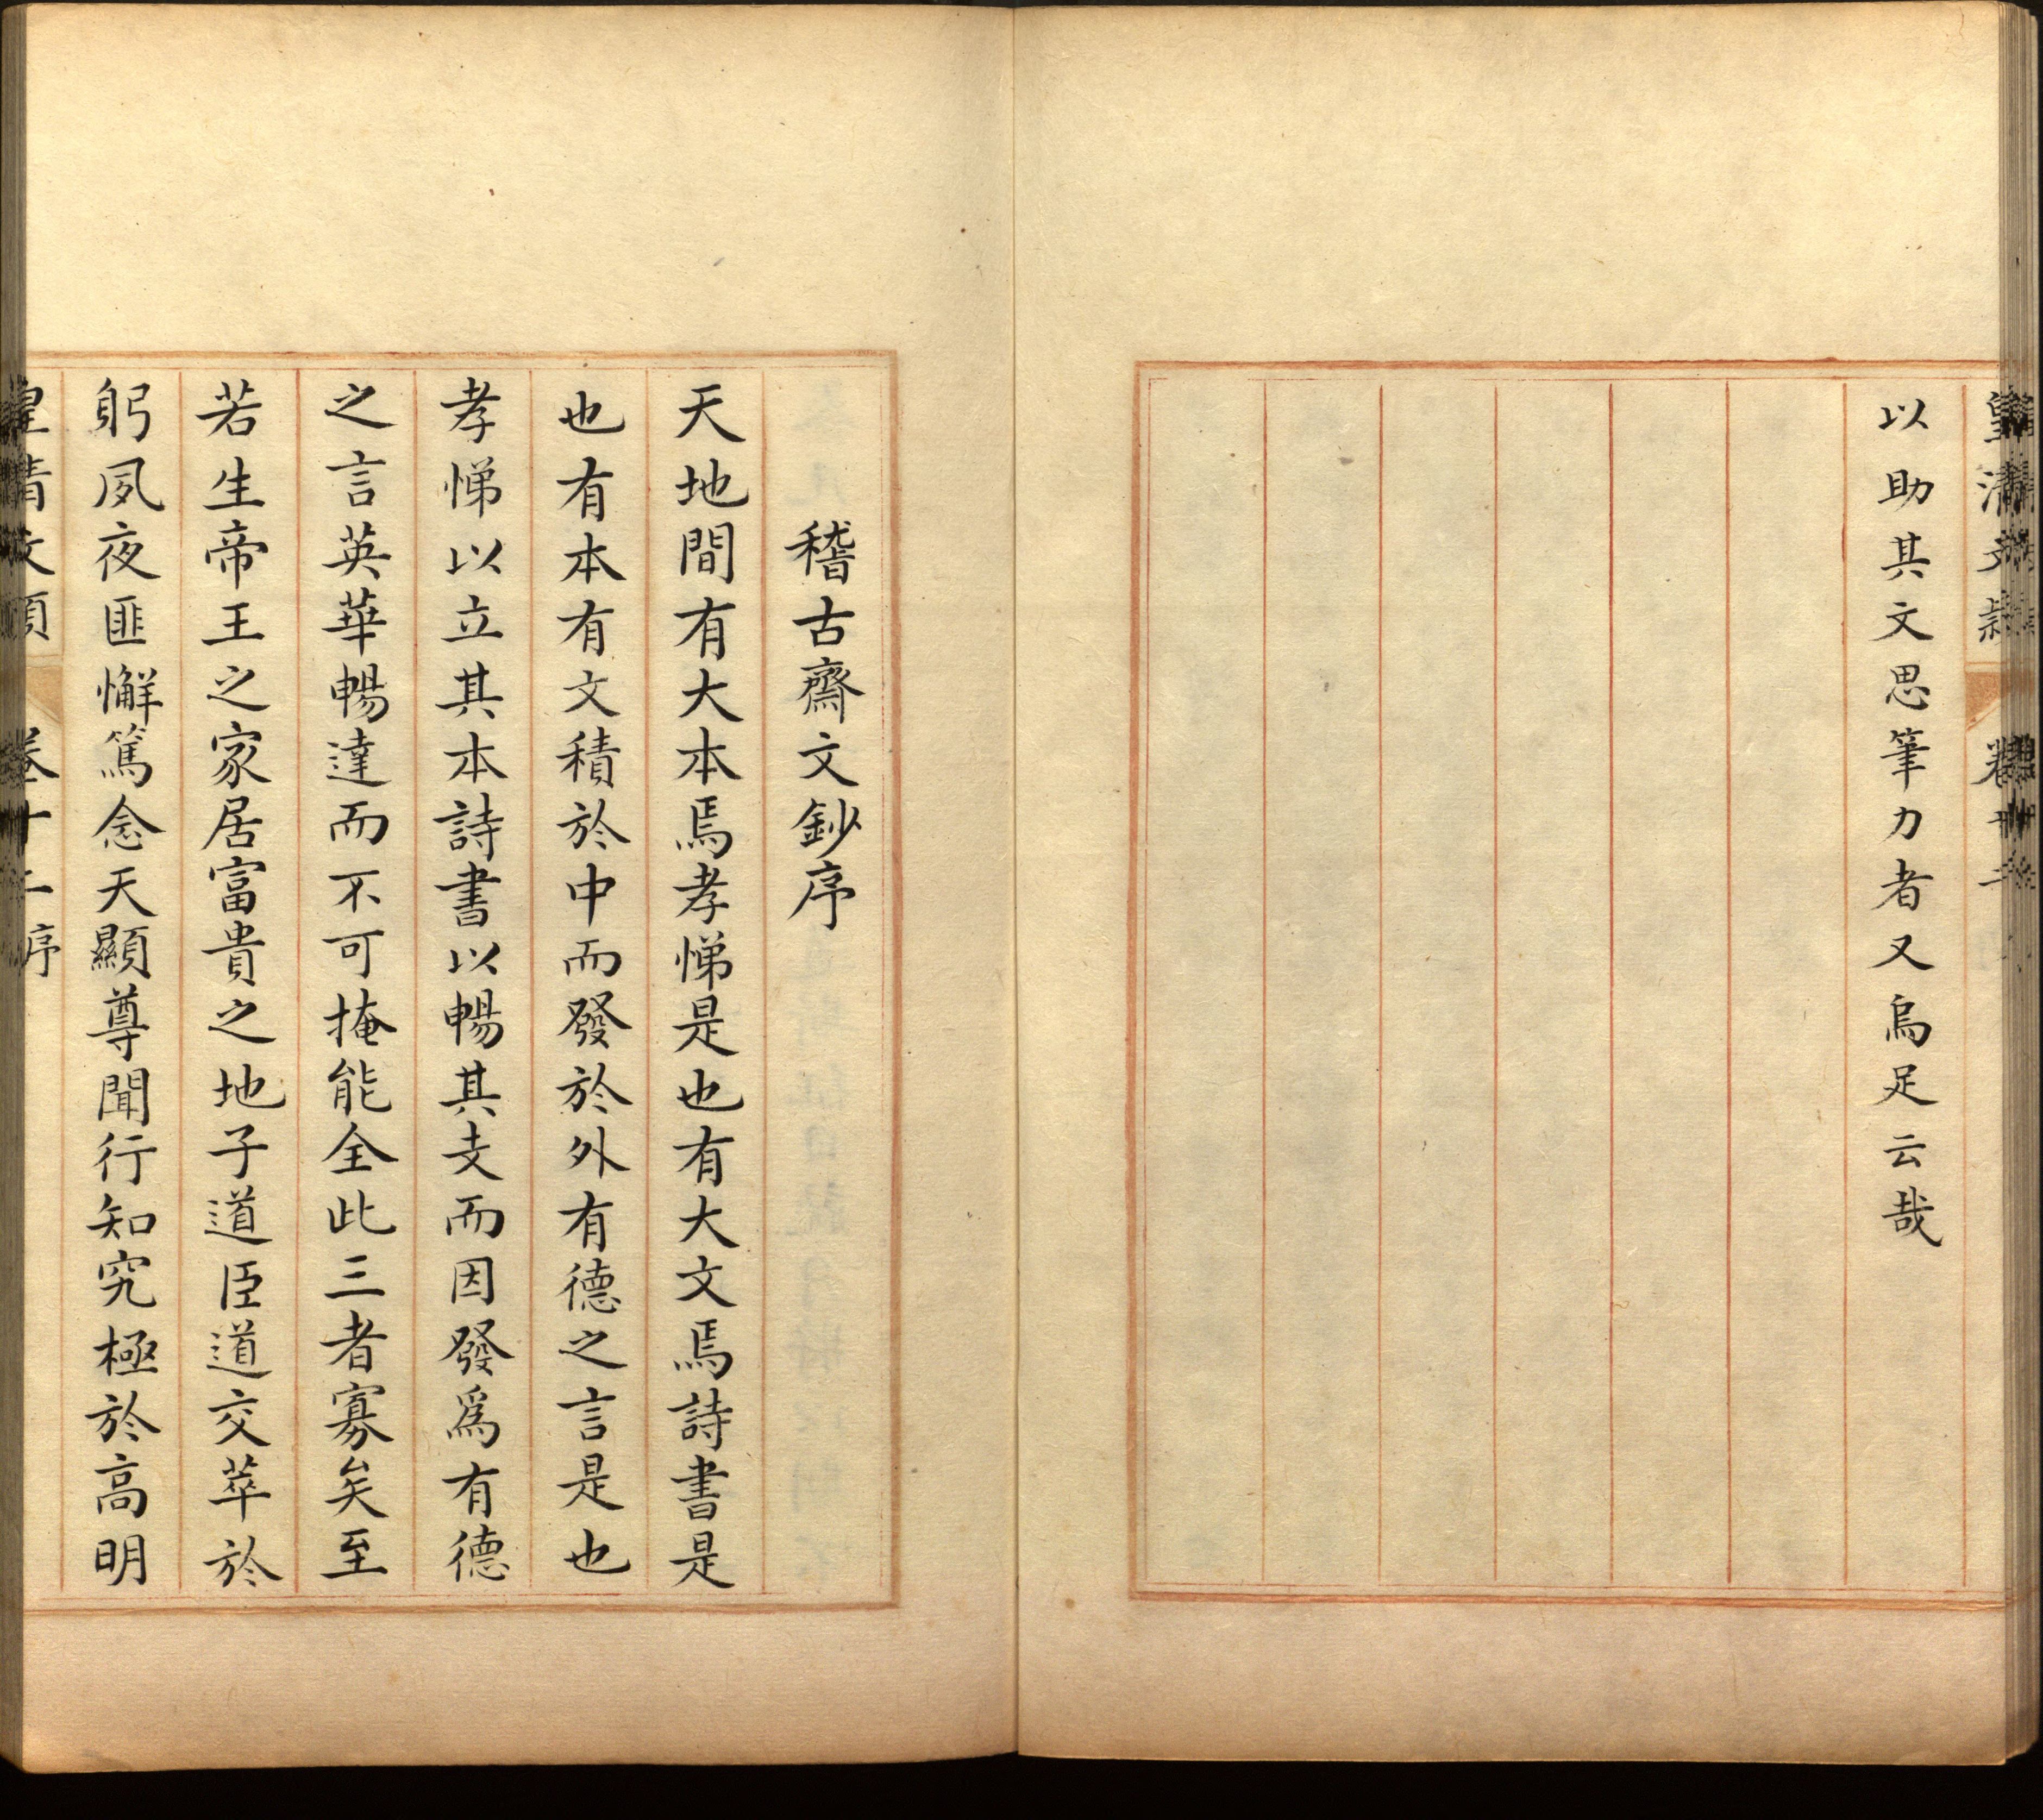 皇清文穎 卷十二
以助其文思筆力者又烏足云哉
稽古齋文鈔序
天地間有大本焉孝悌是也有大文焉詩書是
也有本有文積於中而發於外有德之言是也
孝悌以立其本詩書以暢其支而因發爲有德
之言英華暢達而不可掩能全此三者寡矣至
若生帝王之家居富貴之地子道臣道交萃於
躬夙夜匪懈篤念天顯尊聞行知究極於高明
皇清文穎 卷十二序